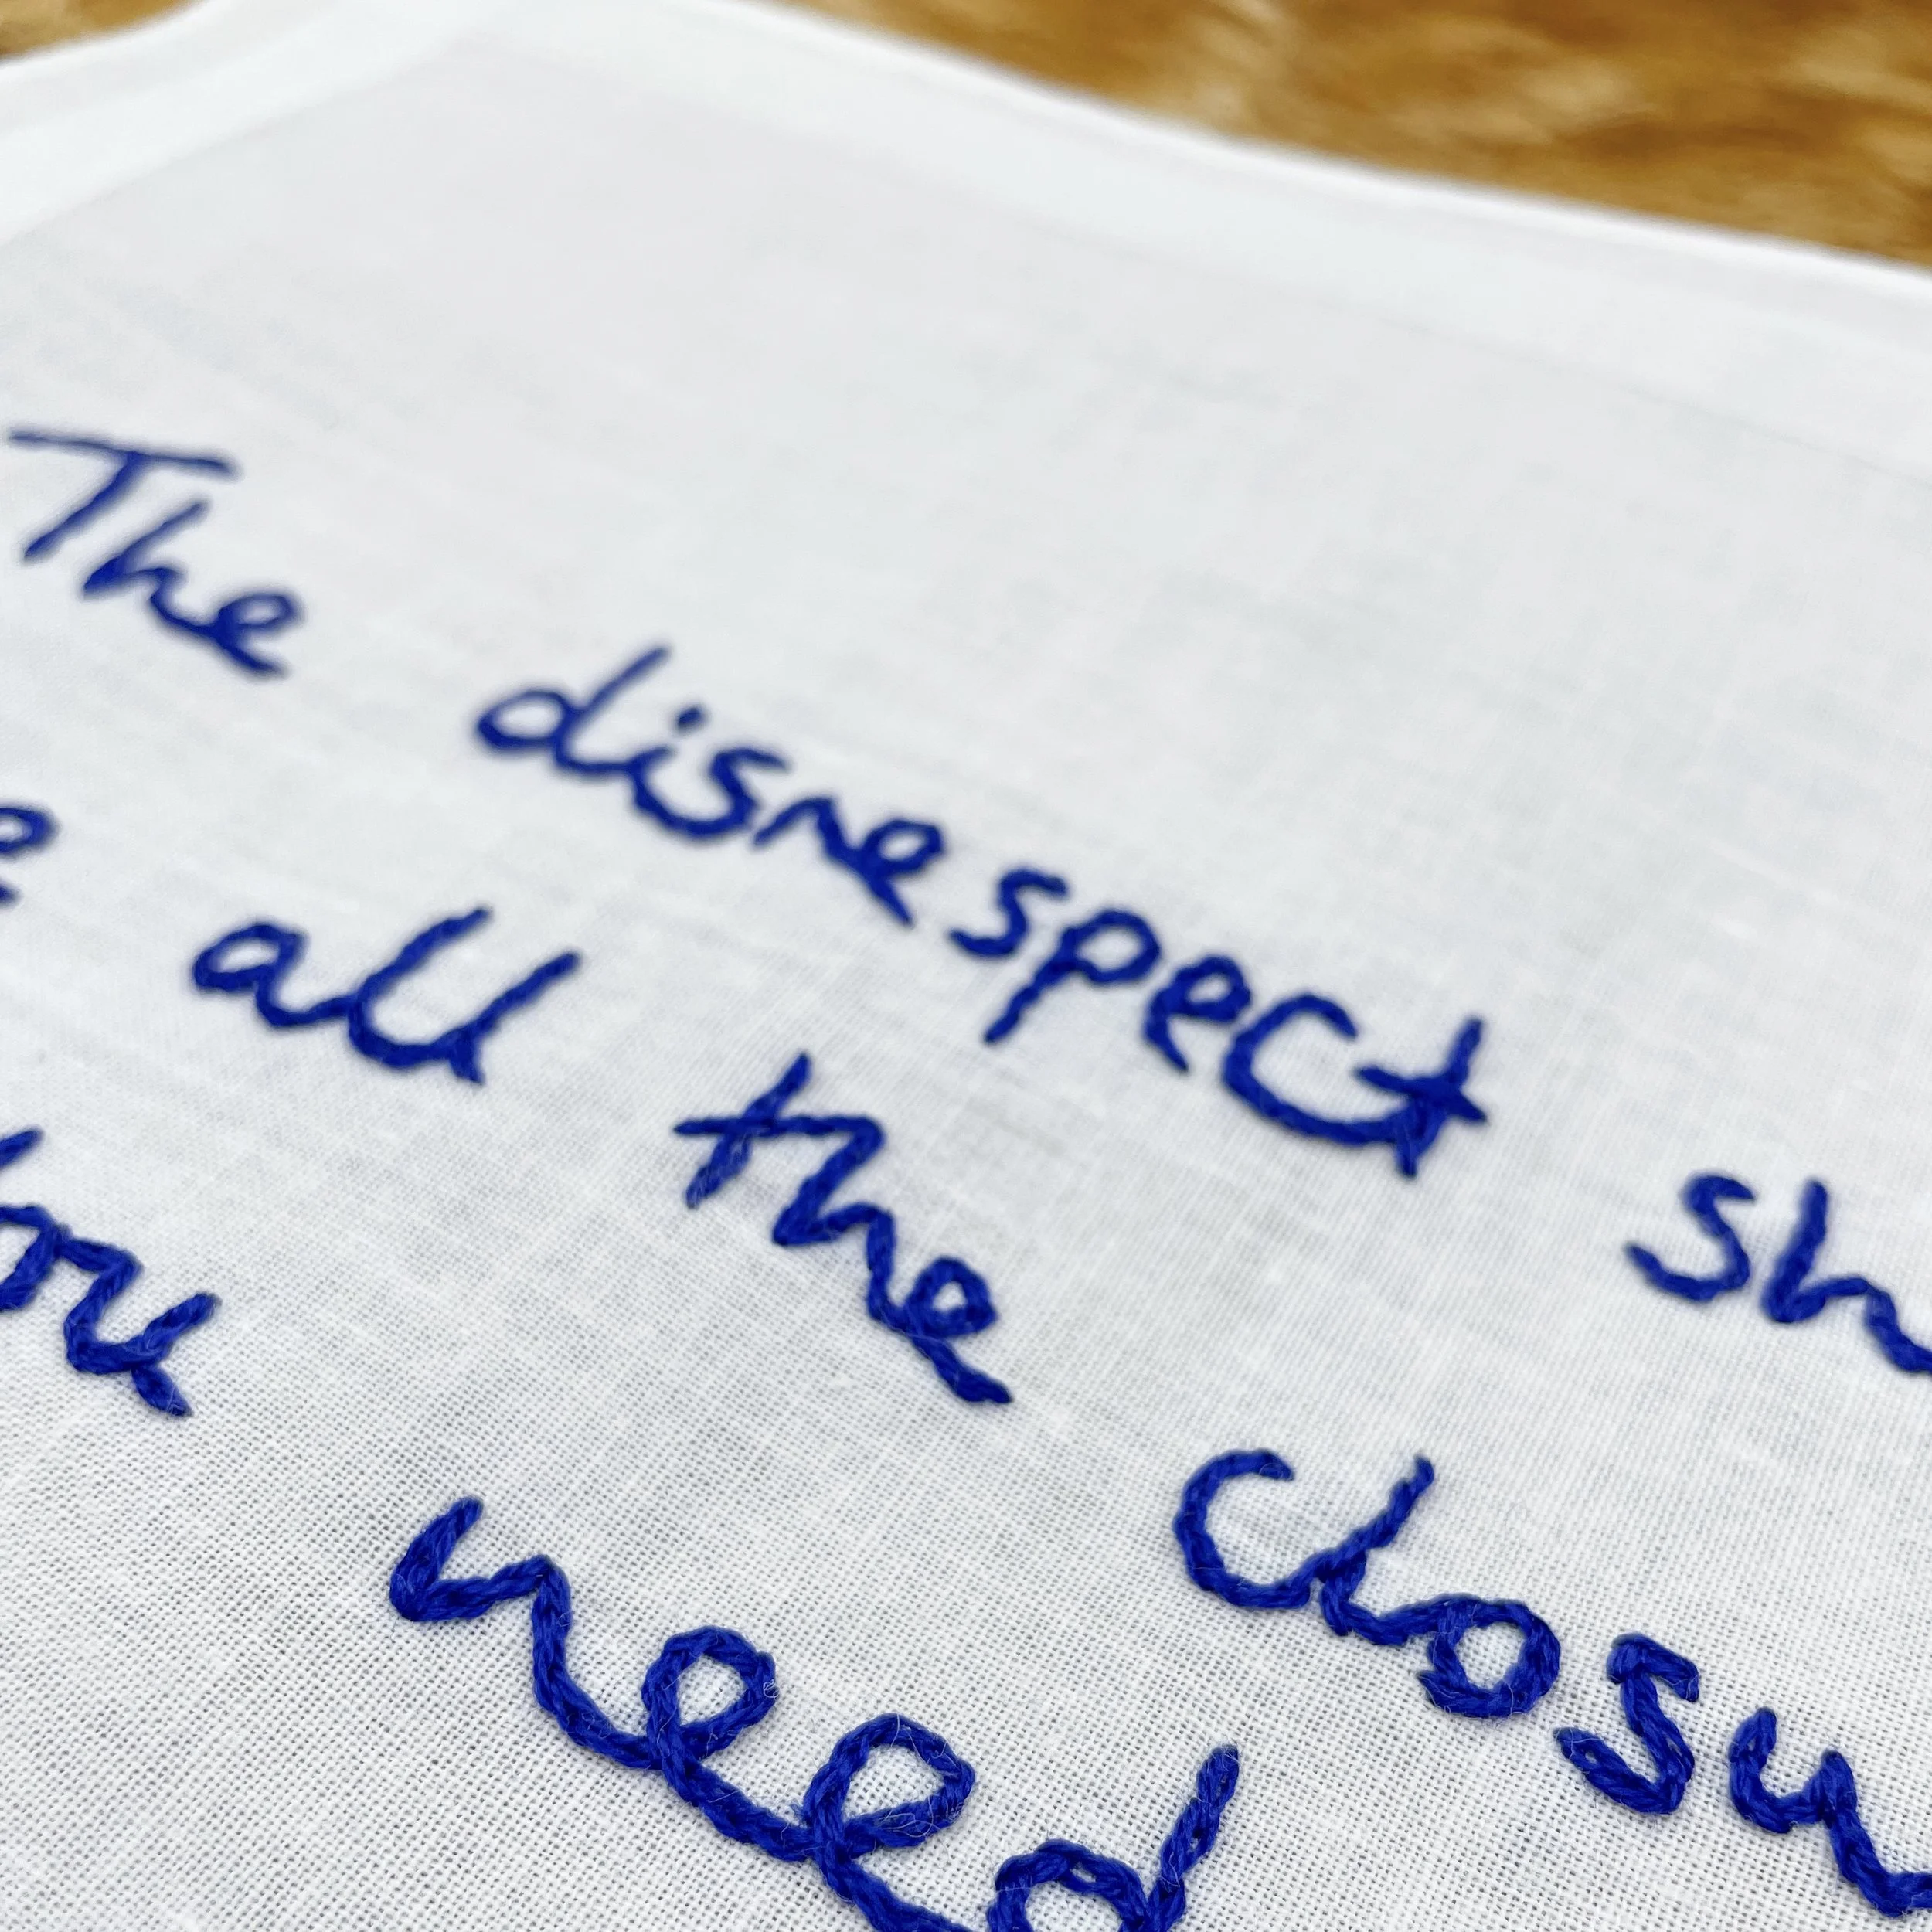 The disrespect sh
e all the closu
you need